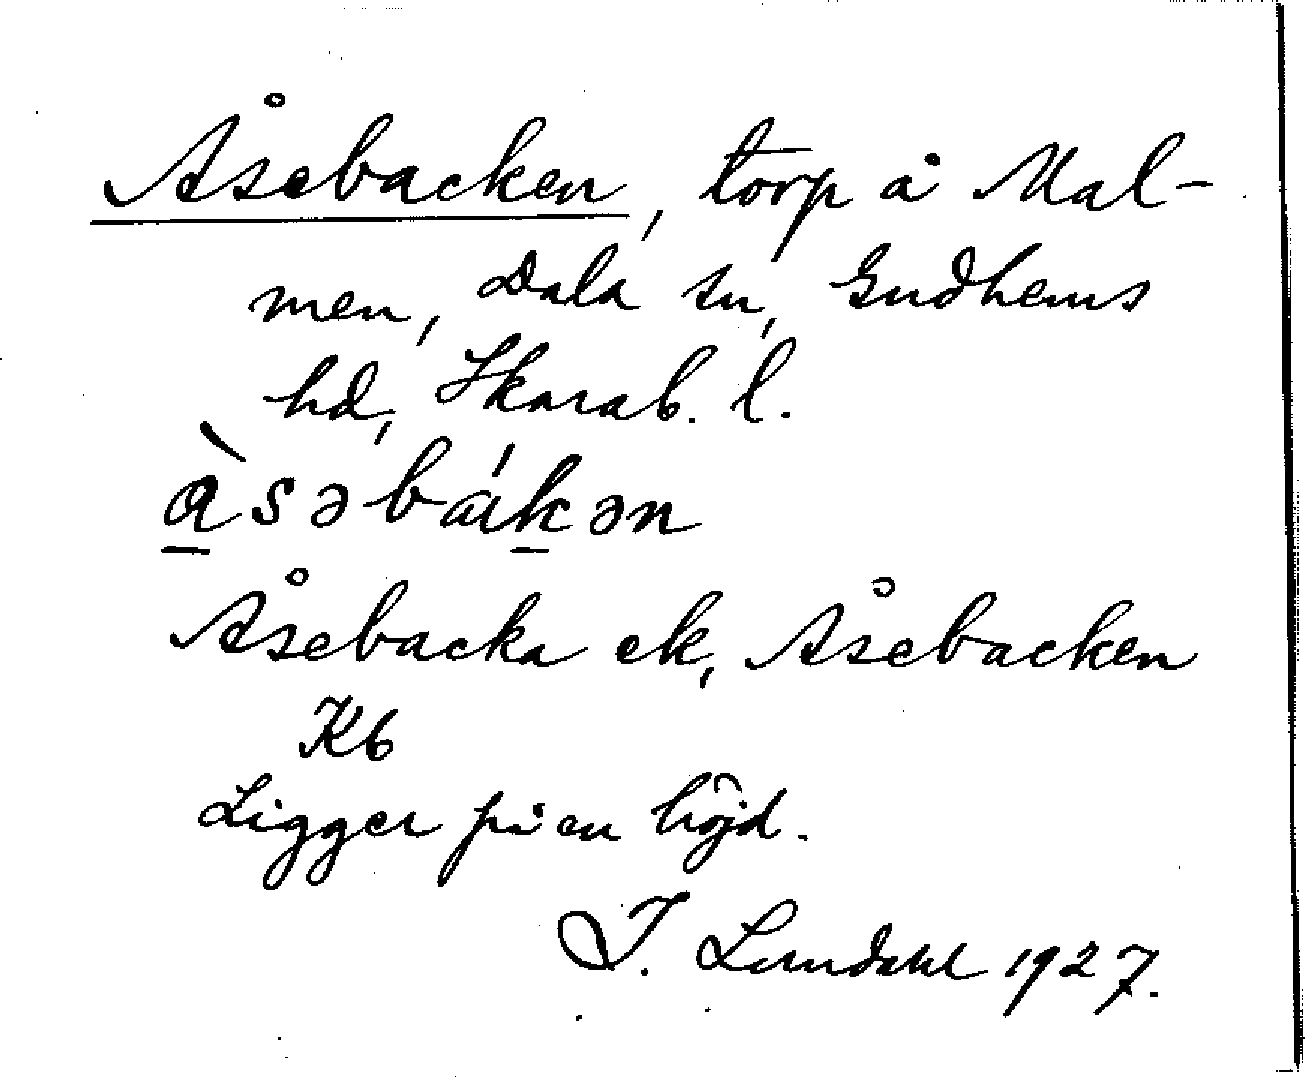 Åsebacken, torp å Mal-
men, Dala sn, Gudhems
hd, Skarab. l.
à̠səbák̠ən
Åsebacka ek, Åsebacken
Kb
Ligger på en höjd.
I. Lundahl 1927.